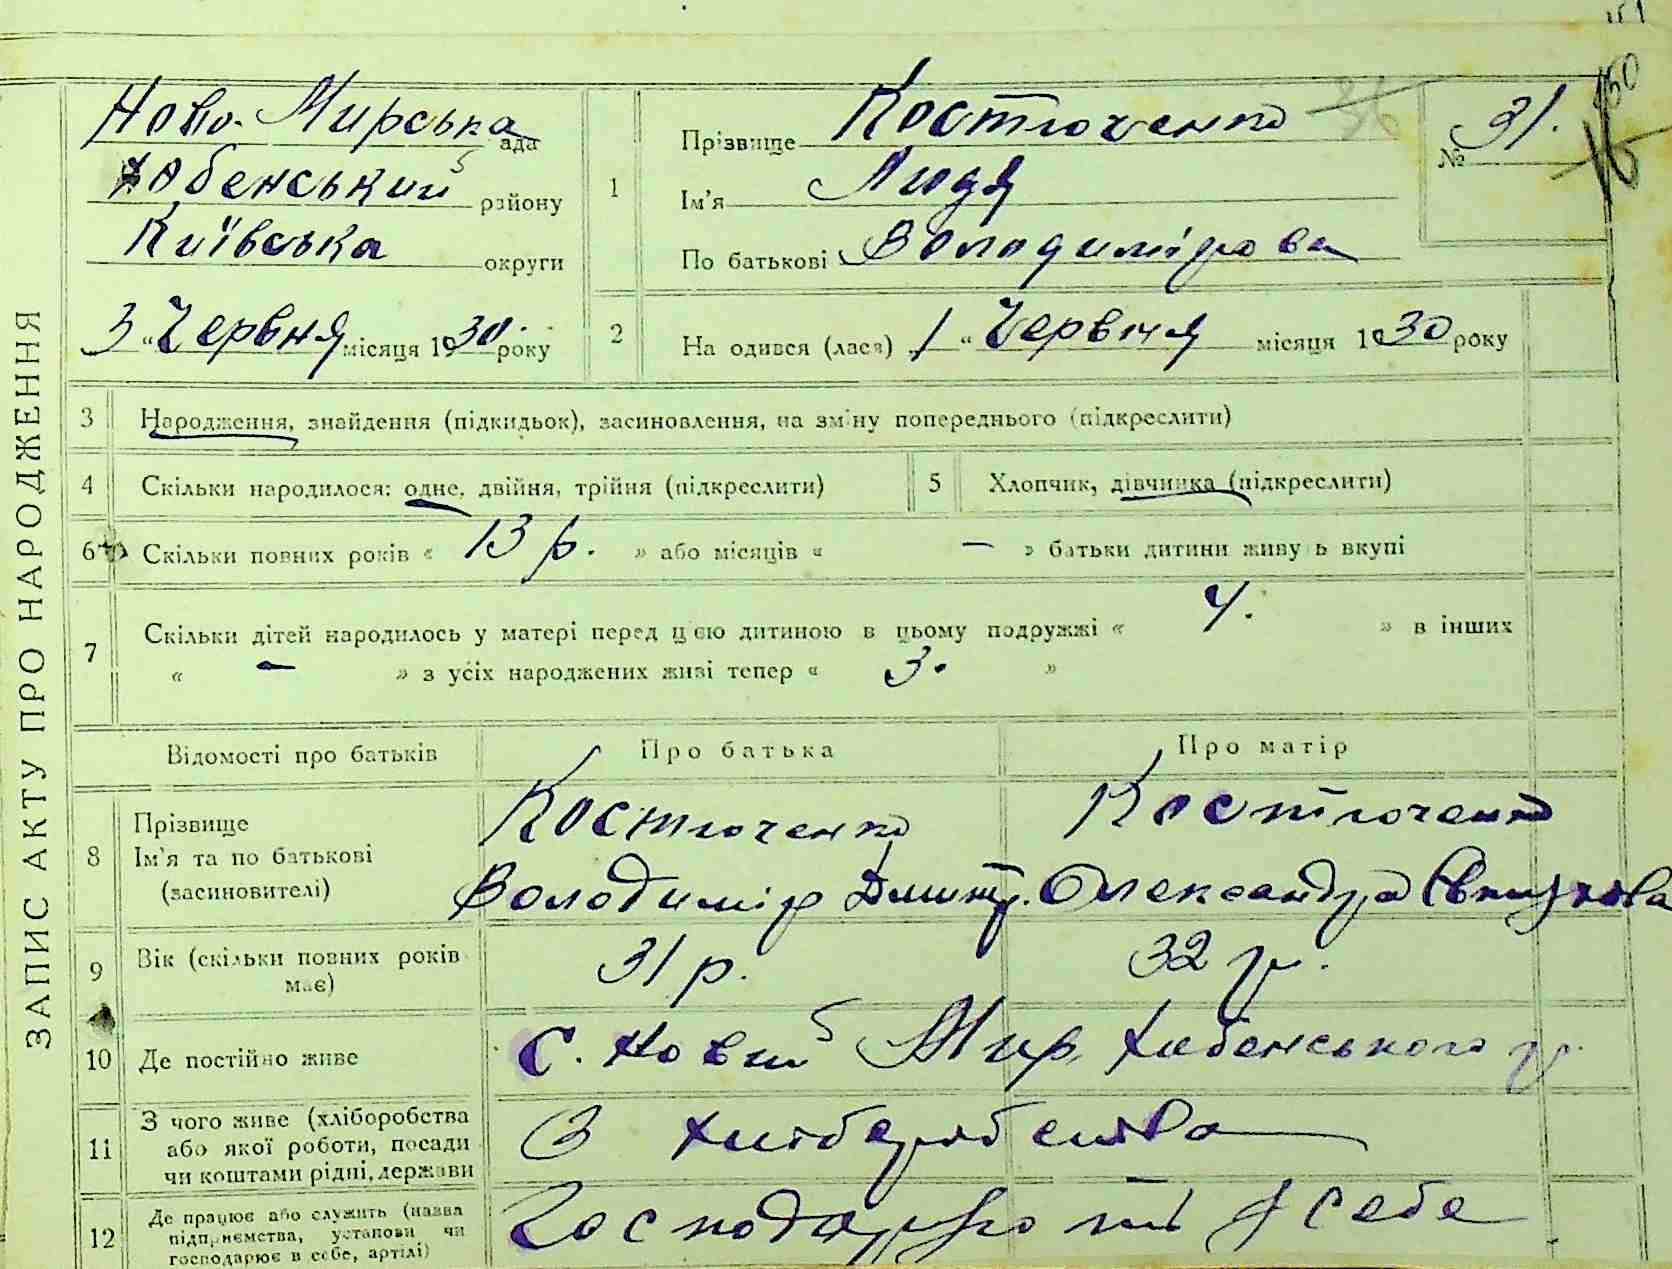 ЗАПИС АКТУ ПРО НАРОДЖЕННЯ
Ново-Мирська ада
Хабенський району
Київська округи
3 "Червня місяця 1930. року
1
Прізвище Костюченко
Ім'я Лидя
По батькові Володимірова
36
№ 31.
150
2 На одився (лася) 1 " Червня місяця 1930 року
3 Народження, знайдення (підкидьок), засиновлення, на зміну попереднього (підкреслити)
4 Скільки народилося: одне, двійня, трійня (підкреслити)
5 Хлопчик, дівчинка (підкреслити)
6 Скільки повних років « 13 р. » або місяців « — » батьки дитини живу ь вкупі
7 Скільки дітей народилось у матері перед цією дитиною в цьому подружжі « 4. » в інших
« — » з усіх народжених живі тепер « 3. »
Відомості про батьків Про батька Про матір
8 Прізвище
Ім'я та по батькові
(засиновителі)
Костюченко
Володимір Дмитр.
Костюченко
Олександра
9 Вік (скільки повних років
має)
31 р. 32 р.
10 Де постійно живе с. Новий Мир, Хабенського р.
11 З чого живе (хліборобства
або якої роботи, посади
чи коштами рідні, держави
З хліборобства
12 Де працює або служить (назва
підприємства, установи чи
господарює в себе, артілі)
у себе